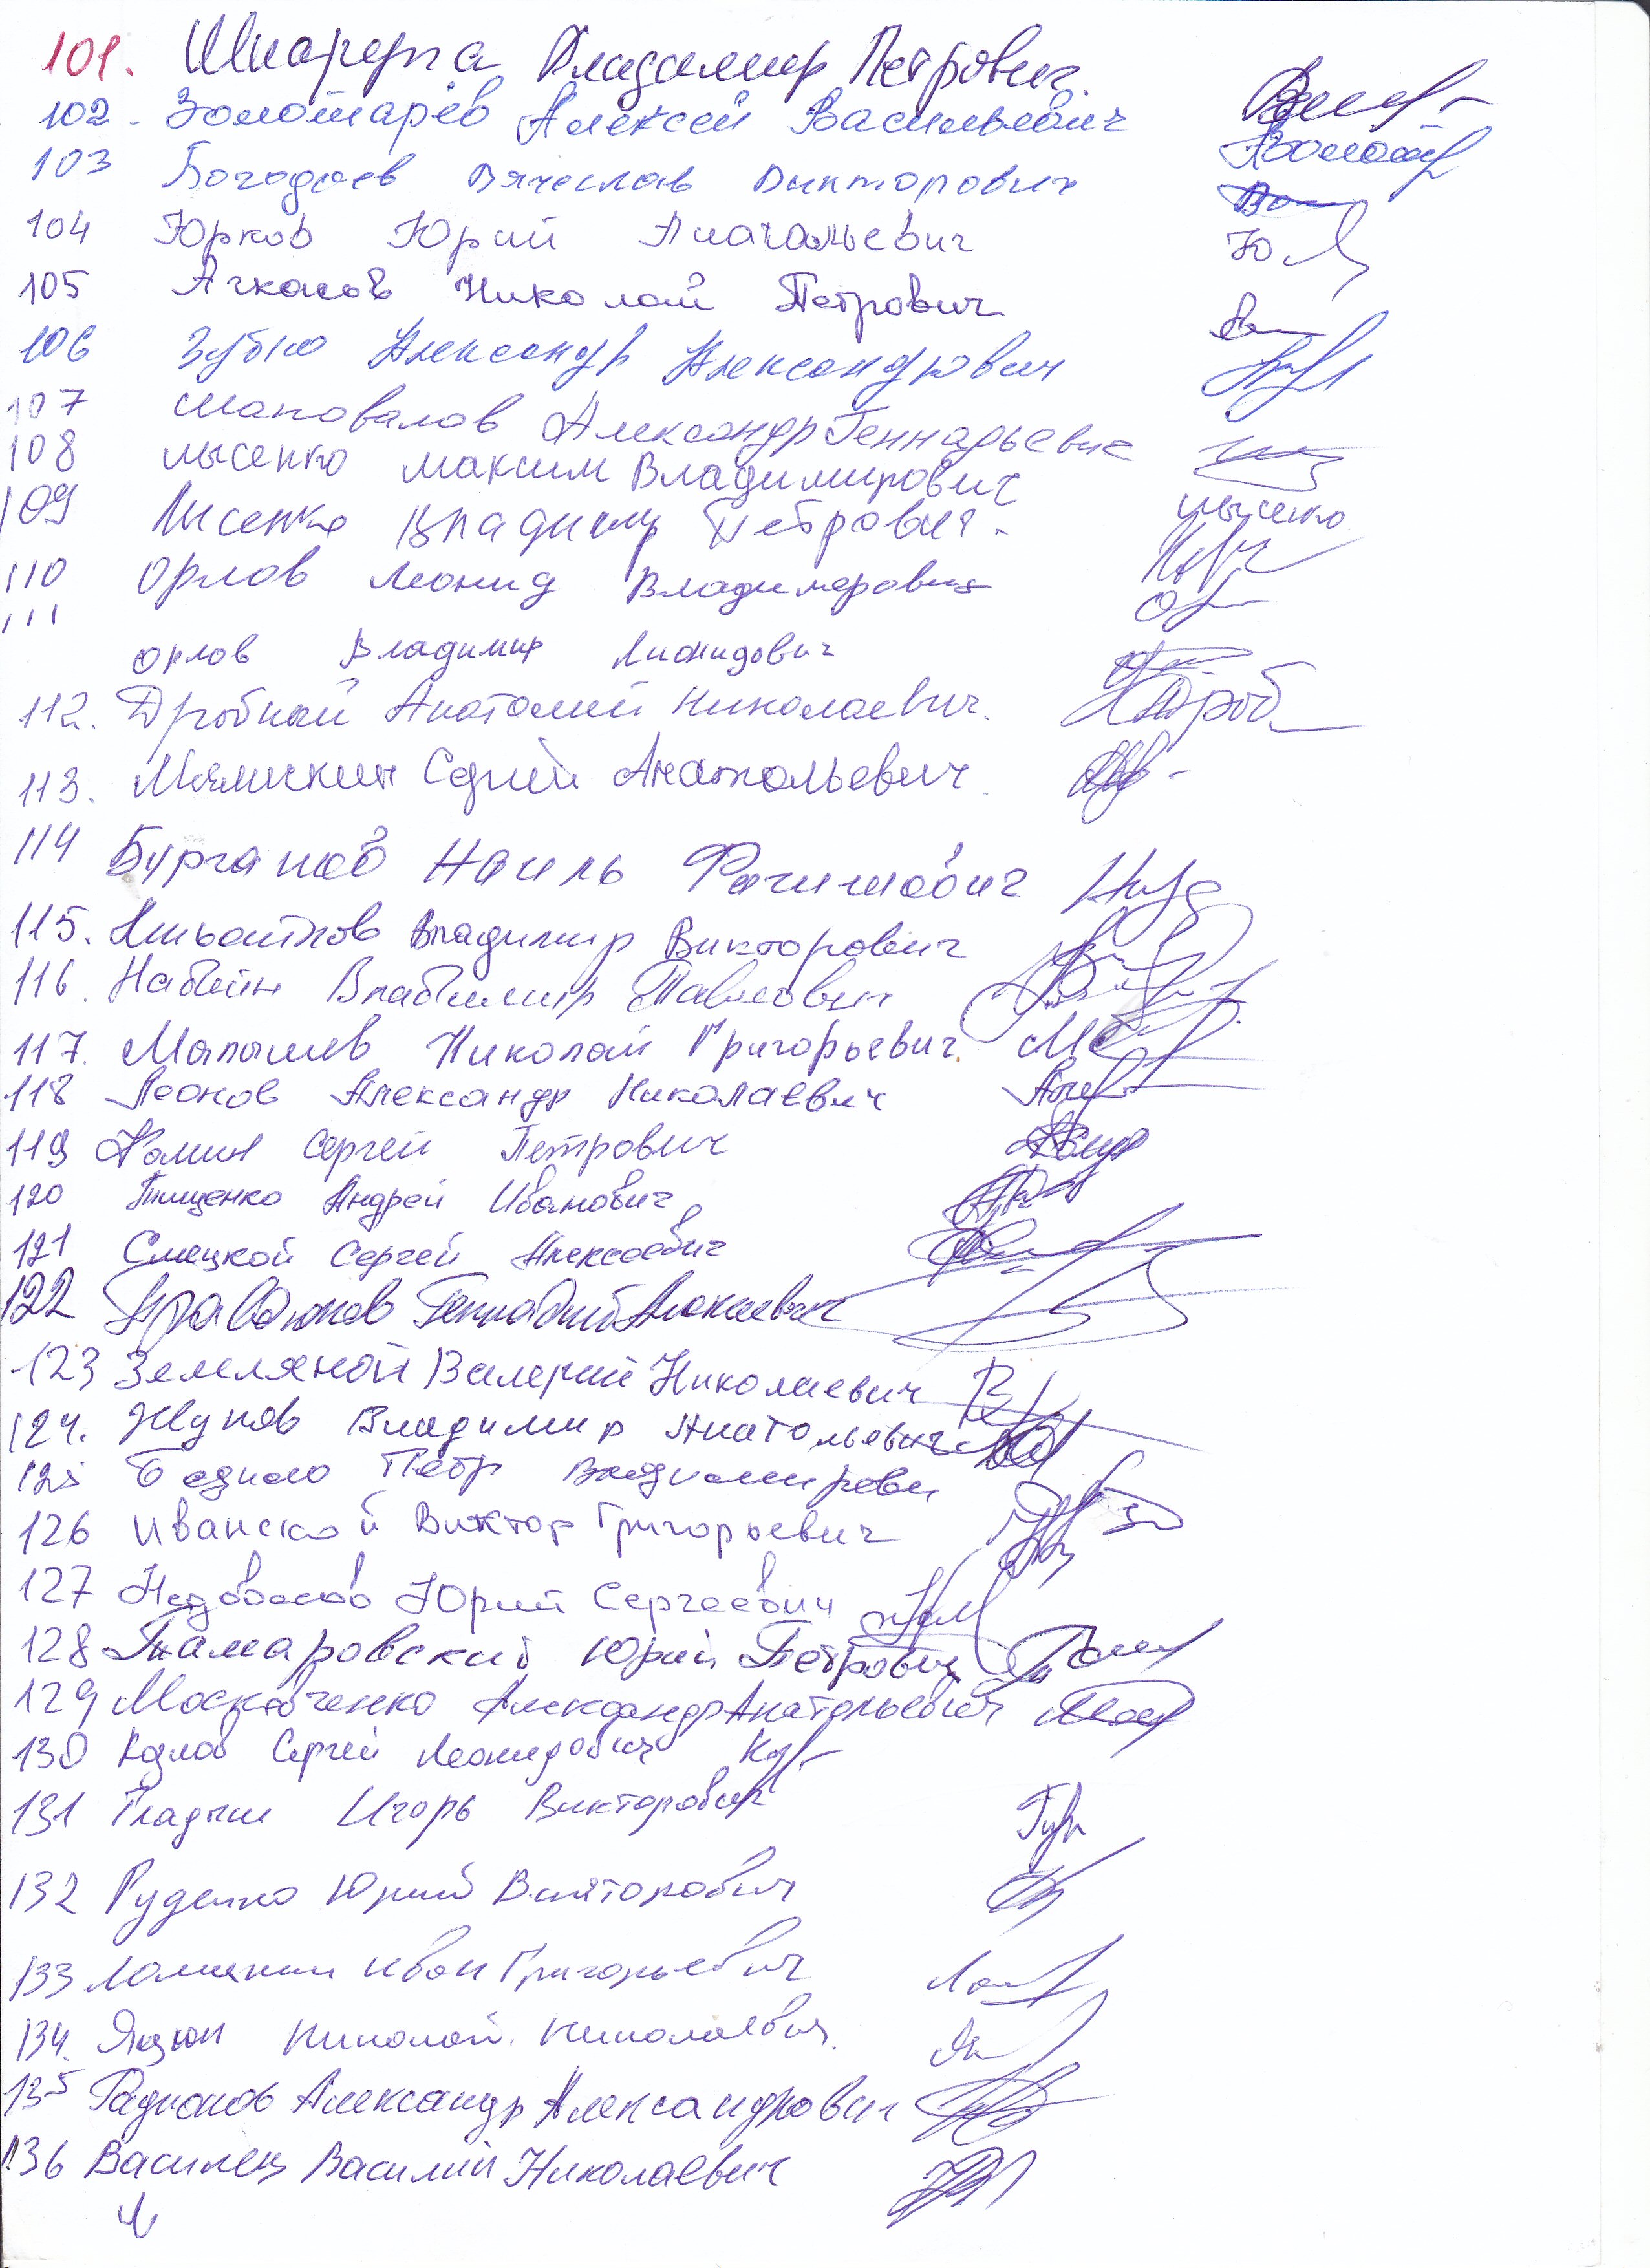 101. Владимир Петрович
102. Золотарёв Алексей Васильевич
103 Вячеслав Викторович
104 Юрков Юрий Анатольевич Ю
105 Ачкасов Николай Петрович
106 Зубко Александр Александрович
107 Шаповалов Александр Геннадьевич
108 Лысенко Максим Владимирович Лысенко
109 Лысенко Владимир Петрович.
110 Орлов Леонид Владимерович
111
Орлов Владимир Лионидович
112. Дробный Анатолий Николаевич.
113. Сергей Анатольевич
114 Бурганов Наиль
115. Владимир Викторович
116. Владимир Павлович
117. Малышев Николай Григорьевич.
118 Леонов Александр Николаевич
119 Фомин Сергей Петрович
120 Тищенко Андрей Иванович
121 Смецкой Сергей Алексеевич
122 Геннадий
123 Земляной Валерий Николаевич
124. Жуков Владимир Анатольевич
125 Пётр
126 Иванской Виктор Григорьевич
127 Юрий Сергеевич
128 Юрий Петрович
129 Москавченко Александр Анатольевич
130 Козлов Сергей Леонидович
131 Гладыш Игорь Викторович
132 Руденко Юрий Викторович
133 Иван Григорьевич
134. Николай. Николаевич.
135 Радионов Александр Александрович
136 Василец Василий Николаевич